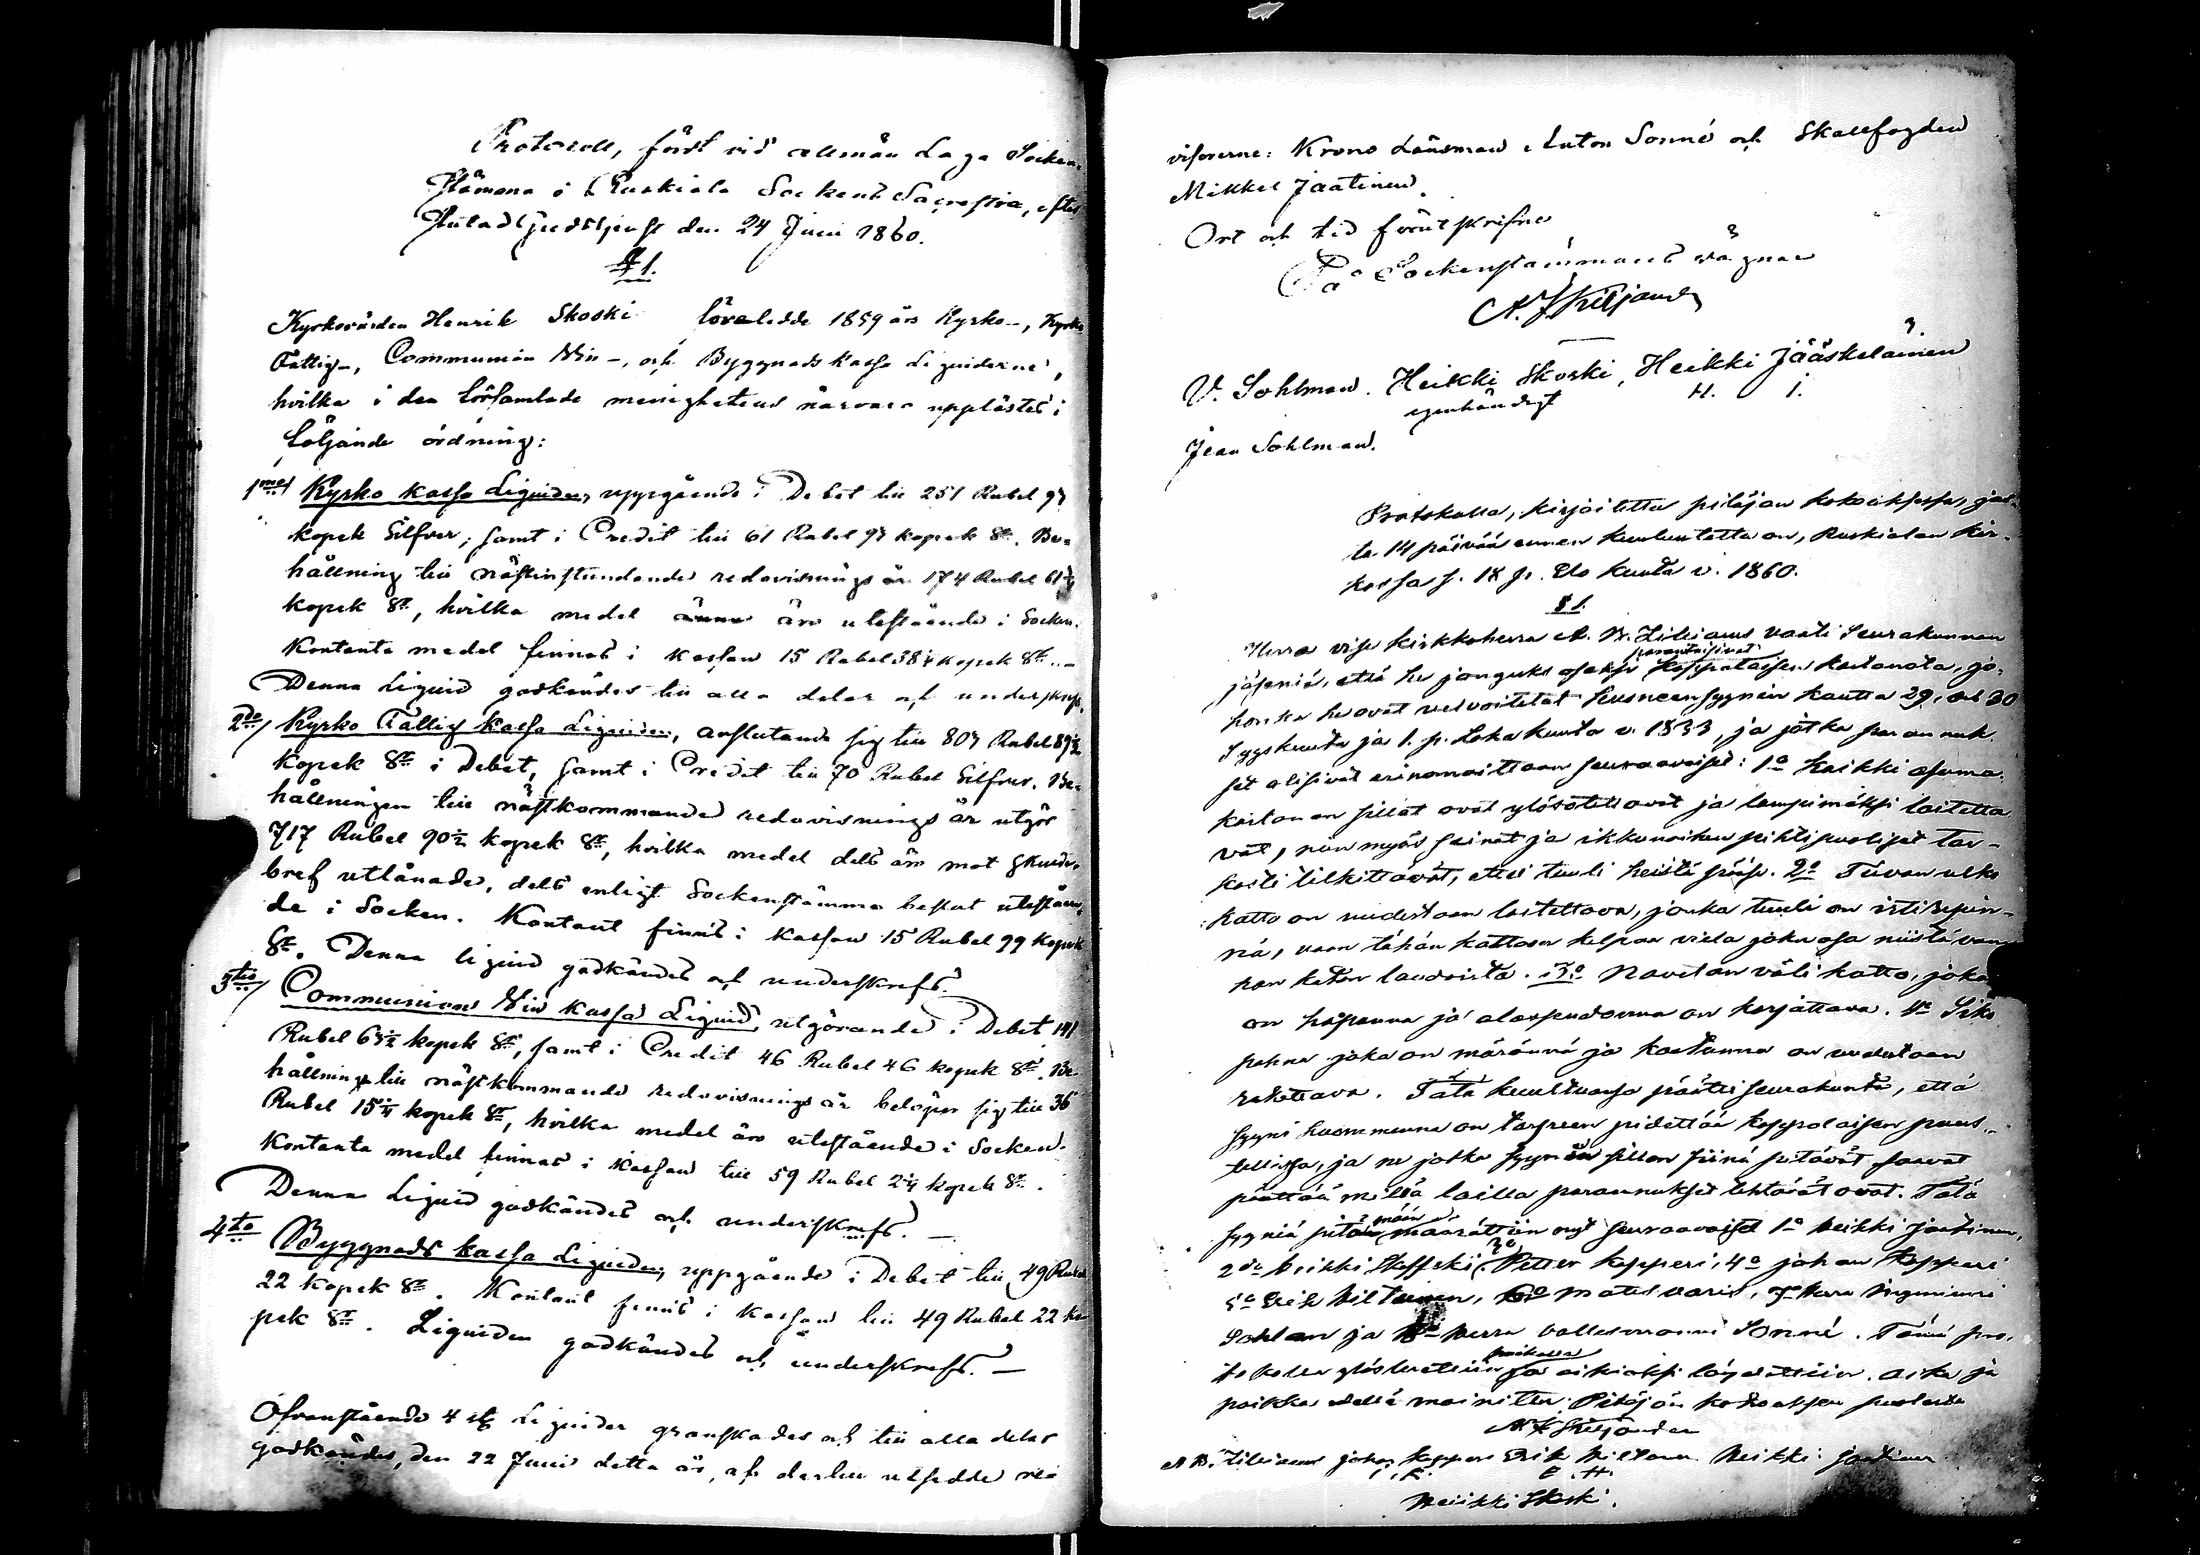 Protocoll, fördt vid allmän Laga Socken-
stämma i Ruskiala Sockens Sacrestia, efter
slutad Gudstjenst den 24 Juni 1860.
§ 1.
Kyrkovärden Henrik Skoski företedde 1859 års Kyrko-, Kyrko
Fattig-, Communion Win-, och Byggnads kassa Liquiderne,
hvilka i den församlade menighetens närvaro upplästes i
följande ordning:
1mo/ Kyrko kassa Liquiden, uppgående i Debet till 251 Rubel 97
kopek Silfver, samt i Credit till 61 Rubel 97 kopek Sr. Be-
hållning till nästinstundande redovisnings år 174 Rubel 61¾
kopek Sr, hvilka medel ännu äro utestående i Socken.
Kontanta medel finnas i kassan 15 Rubel 38¼ kopek Sr. —
Denna Liquid godkändes till alla delar och underskrefs.
2do/ Kyrko Fattig kassa Liquiden, afslutande sig till 807 Rubel 89½
kopek Sr i Debet, samt i Credit till 70 Rubel Silfver. Be-
hållningen till nästkommande redovisnings år utgör
717 Rubel 90½ kopek Sr, hvilka medel dels äro mot skulde-
bref utlånade, dels enligt Sockenstämma beslut utståen-
de i Socken. Kontant finns i kassan 15 Rubel 99 kopek
Sr. Denna liquid godkändes och underskrefs.
3tio/ Communion Win kassa Liquid, utgörande i Debet 141
Rubel 63½ kopek Sr, samt i Credit 46 Rubel 46 kopek Sr. Be-
hållning till nästkommande redovisnings år belöper sig till 36
Rubel 15¼ kopek Sr, hvilka medel äro utestående i Socken.
Kontanta medel finnas i kassan till 59 Rubel 2¼ kopek Sr.
Denna Liquid godkändes och underskrefs. —
4to Byggnads kassa Liquiden, uppgående i Debet till 49 Rubel
22 kopek Sr. Kontant finns i kassan till 49 Rubel 22 ko-
pek Sr. Liquiden godkändes och underskrefs. —
Ofvanstående 4 st Liquider granskades och till alla delar
godkändes, den 22 Juni detta år, af dertill utsedde re-
visorerne: Krono Länsman Anton Sonné och Skallfogden
Mikkel Jaatinen.
Ort och tid förutskrifne
På Sockenstämmans vägnar
V. Sohlman. Heikki Skoski, Heikki Jääskeläinen
egenhändigt H. J.
Jean Sohlman.
Protokolla, kirjoitettu pitäjän kokouksessa, jos-
ta 14 päivää ennen kuuluutettu on, Ruskialan kir-
kossa s. 18 p. Elo kuuta v. 1860.
§ 1.
Herra vise kirkkoherra A. B. Lilius vaati Seurakunnan
parantaisivat
jäseniä, että he jonguks osaksi kappalaisen kartanota, jo-
honka he ovat velvoitetut huoneensyynin kautta 29. ja 30
Syyskuuta ja 1. p. Lokakuuta v. 1833, ja jotka parannuk-
set olisivat erinomaittain seuraavaiset: 1o kaikki asuma-
kartanon sillat ovat ylösotettavat ja lämpimäksi laitetta-
vat, niin myös seinät ja ikkunoihen pihtipuoliset tar-
kasti tilkittävät, ettei tuuli heistä pääse. 2o Tuvan ulko
katto on uudestaan laitettava, jonka tuuli on
nä, vaan tähän kattoon kelpaa vielä joku osa niistä van-
han katon laudoista. 3o Navetan väli katto, joka
on hapannu ja alaspudonnu on korjattava. 4o
joka on märännä ja kaatunna on uudestaan
rakettava. Tätä kuultuansa päätti Seurakunta, että
syyni huomenna on tarpeen pidettää kappalaisen puus-
tellissa, ja ne jotka syynin sillon siinä pitävät saavat
päättää millä lailla parannukset tehtävät ovat. Tätä
syyniä pitämään määrättiin nyt seuraavaiset 1o Heikki Jaatinen,
2do Heikki Skoski 3o Petter Kopperi, 4o Johan Kopperi
5o Erik Hiltunen, 6o Mats Varis, 7o Herra Ingenieuri
Sohlman ja 8o Herra vallesmanni Sonné. Tämä pro-
tokolla ylösluettiin ja oikiaksi löydettiin. Aika ja
paikka edellä mainittu. Pitäjän kokouksen puolesta
Johan Kopperi Erik Hiltunen Heikki Jaatinen
J. K. E. H.
Heikki Skoski.